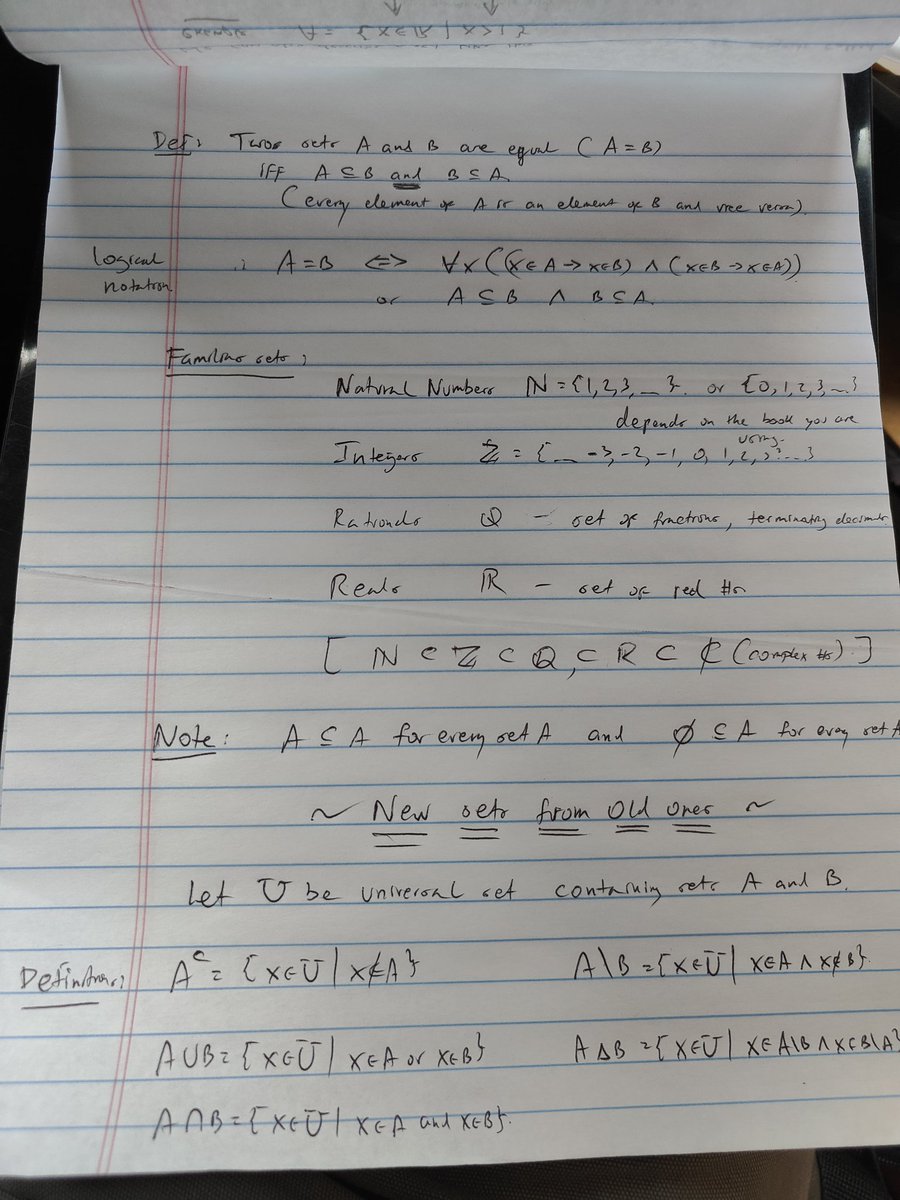 Example A = {x∈R | x>1}
Def: Two sets A and B are equal (A = B)
IFF A ⊆ B and B ⊆ A
(every element of A is an element of B and vice versa).
Logical notation. ∴ A = B ⇔ ∀x((x∈A → x∈B) ∧ (x∈B → x∈A))
or A ⊆ B ∧ B ⊆ A.
Familiar sets:
Natural Numbers ℕ = {1,2,3,...}. or {0,1,2,3...}
depends on the book you are using.
Integers ℤ = {... -3,-2,-1, 0, 1,2,3...}
Rationals ℚ – set of fractions, terminating decimals
Reals ℝ – set of real #s
[ ℕ ⊂ ℤ ⊂ ℚ ⊂ ℝ ⊂ ℂ (complex #s) ]
Note: A ⊆ A for every set A and ∅ ⊆ A for every set A
~ New sets from Old ones ~
Let U be universal set containing sets A and B.
Definitions: Aᶜ = {x∈U | x∉A} A\B = {x∈U | x∈A ∧ x∉B}.
A∪B = {x∈U | x∈A or x∈B} A∆B = {x∈U | x∈A\B ∧ x∈B\A}
A∩B = {x∈U | x∈A and x∈B}.